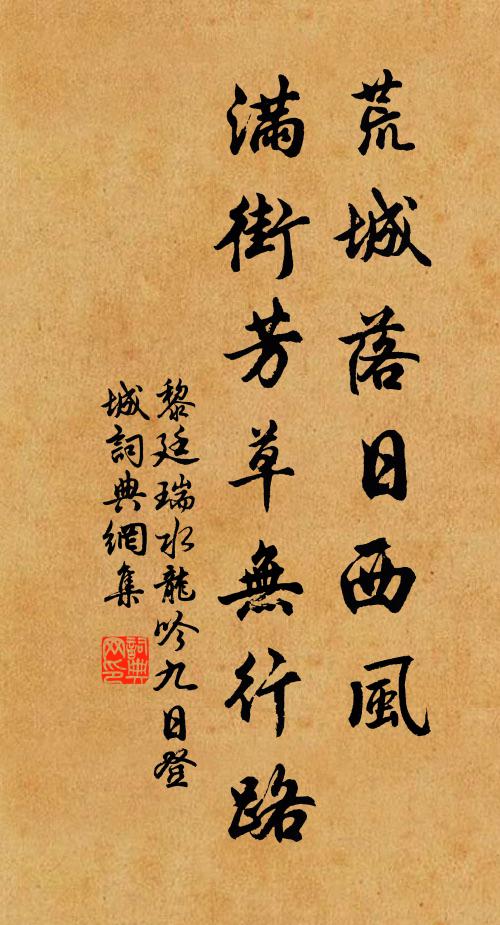 荒城落日西風
滿街芳草無行路
黎廷瑞水龍吟九日登
城詞典網集
詞典网印